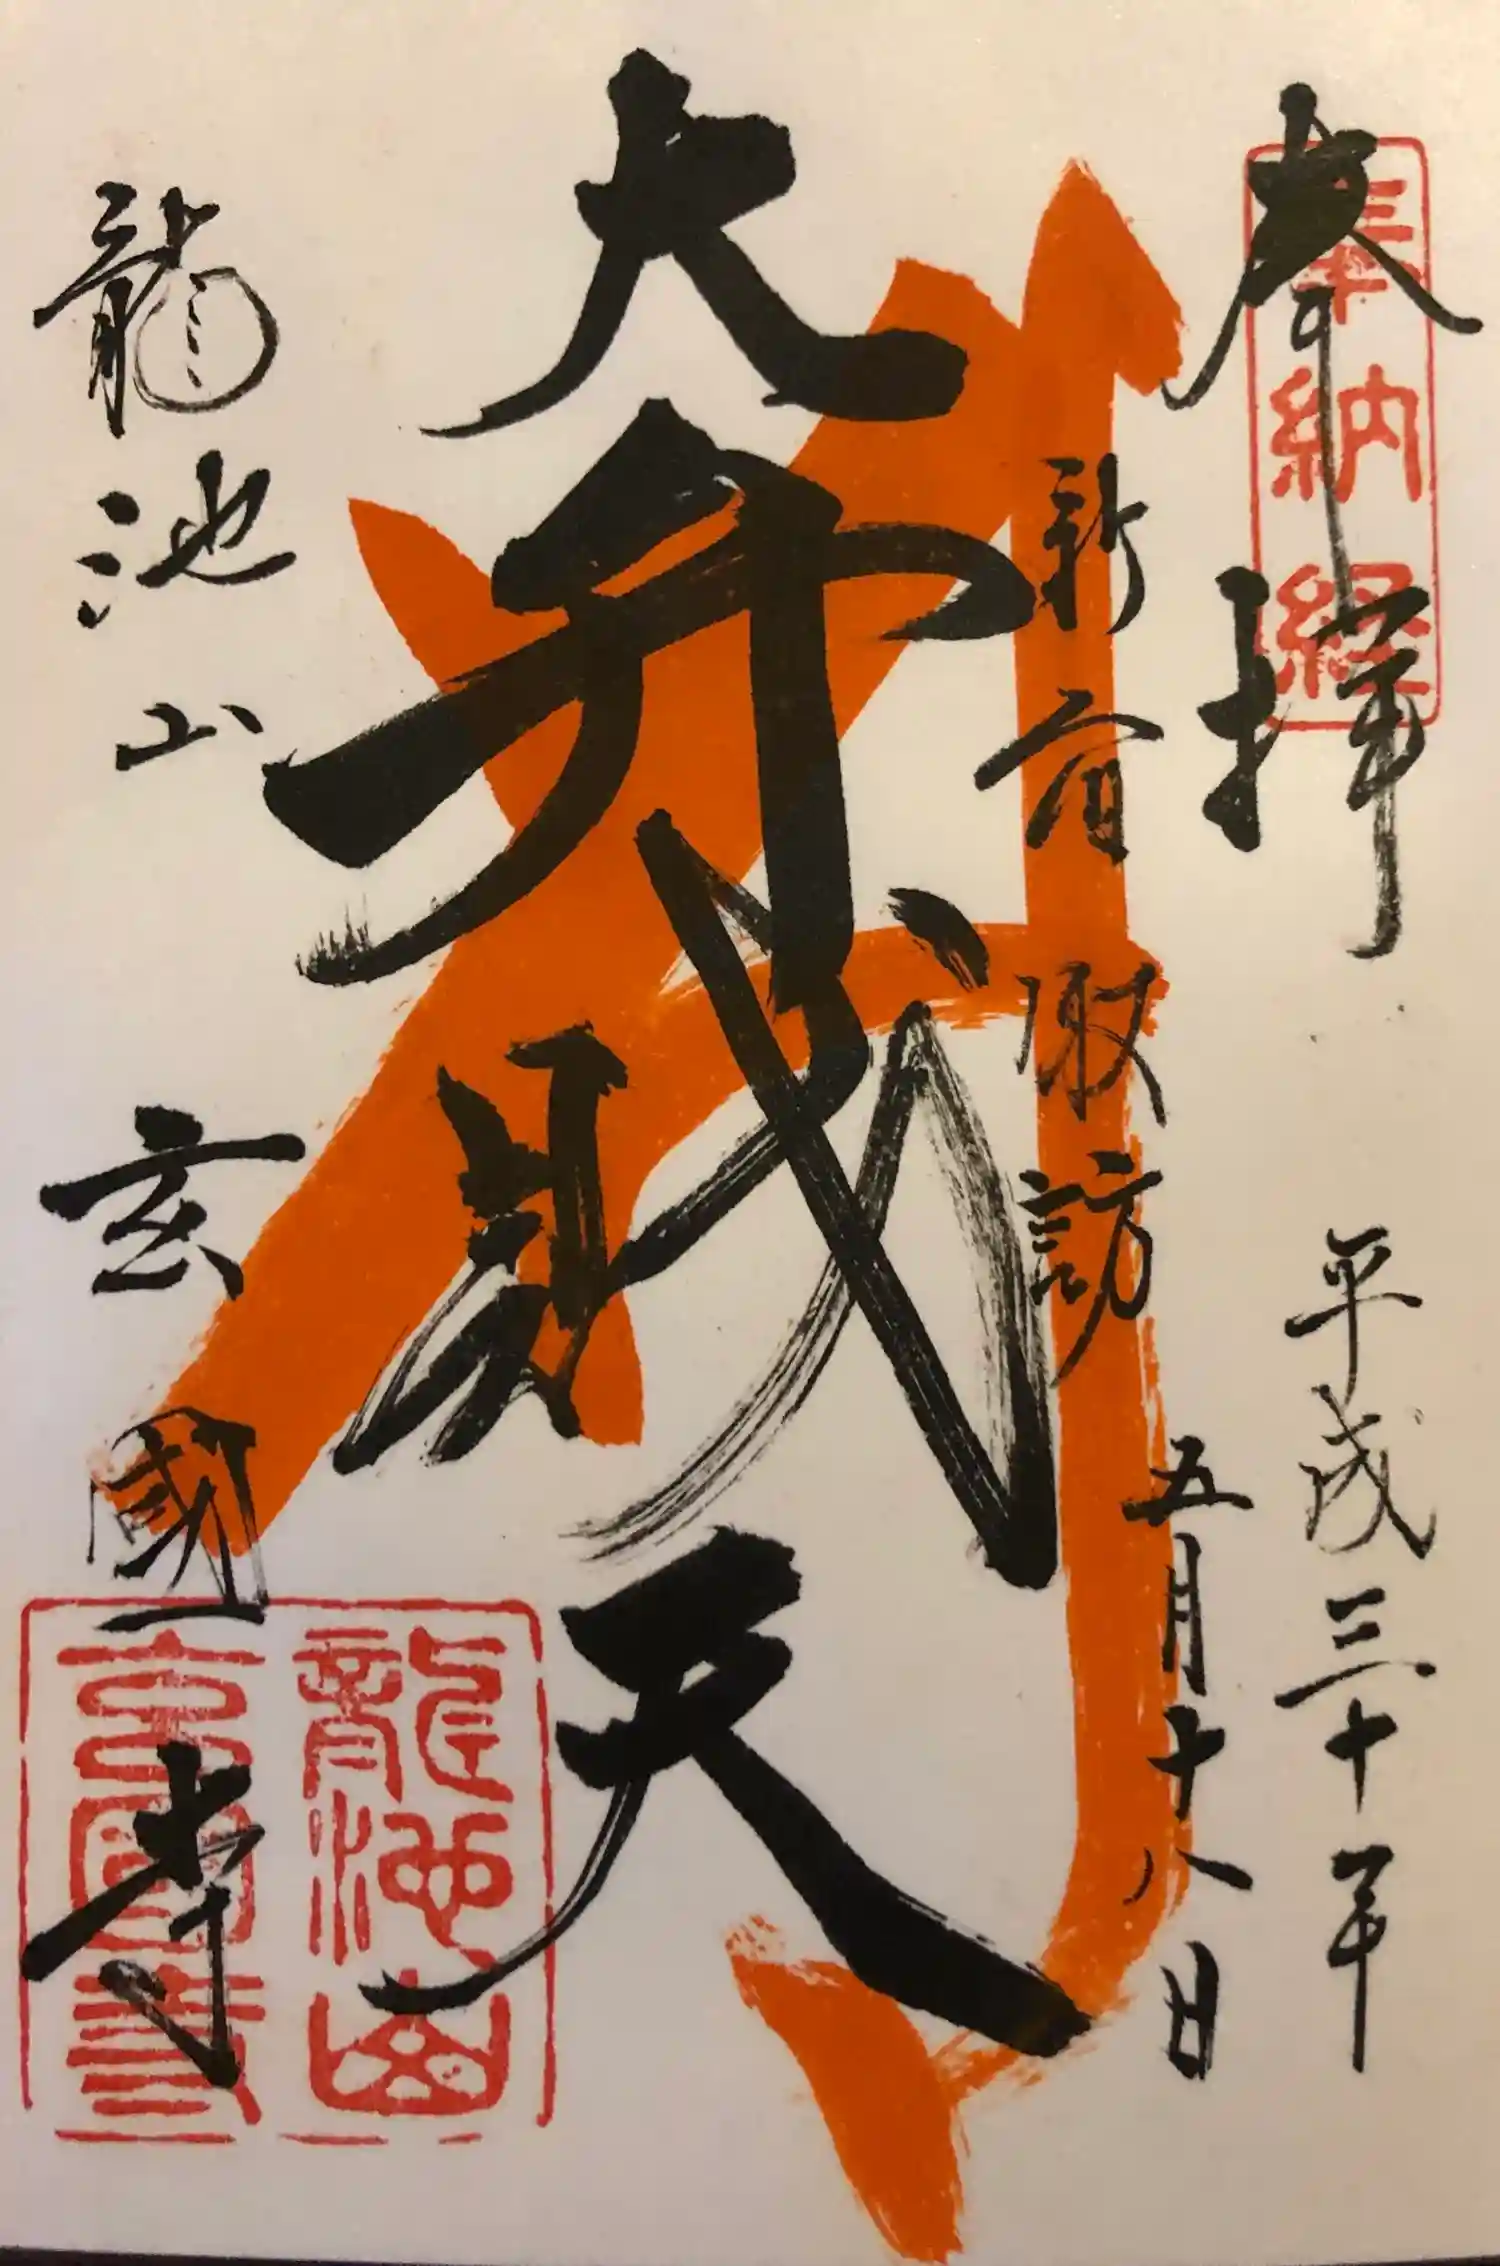 奉拝
奉納経
平成三十年
五月十八日
新宿取訪
大弁財天
龍池山
玄國寺
龍池山
玄國寺